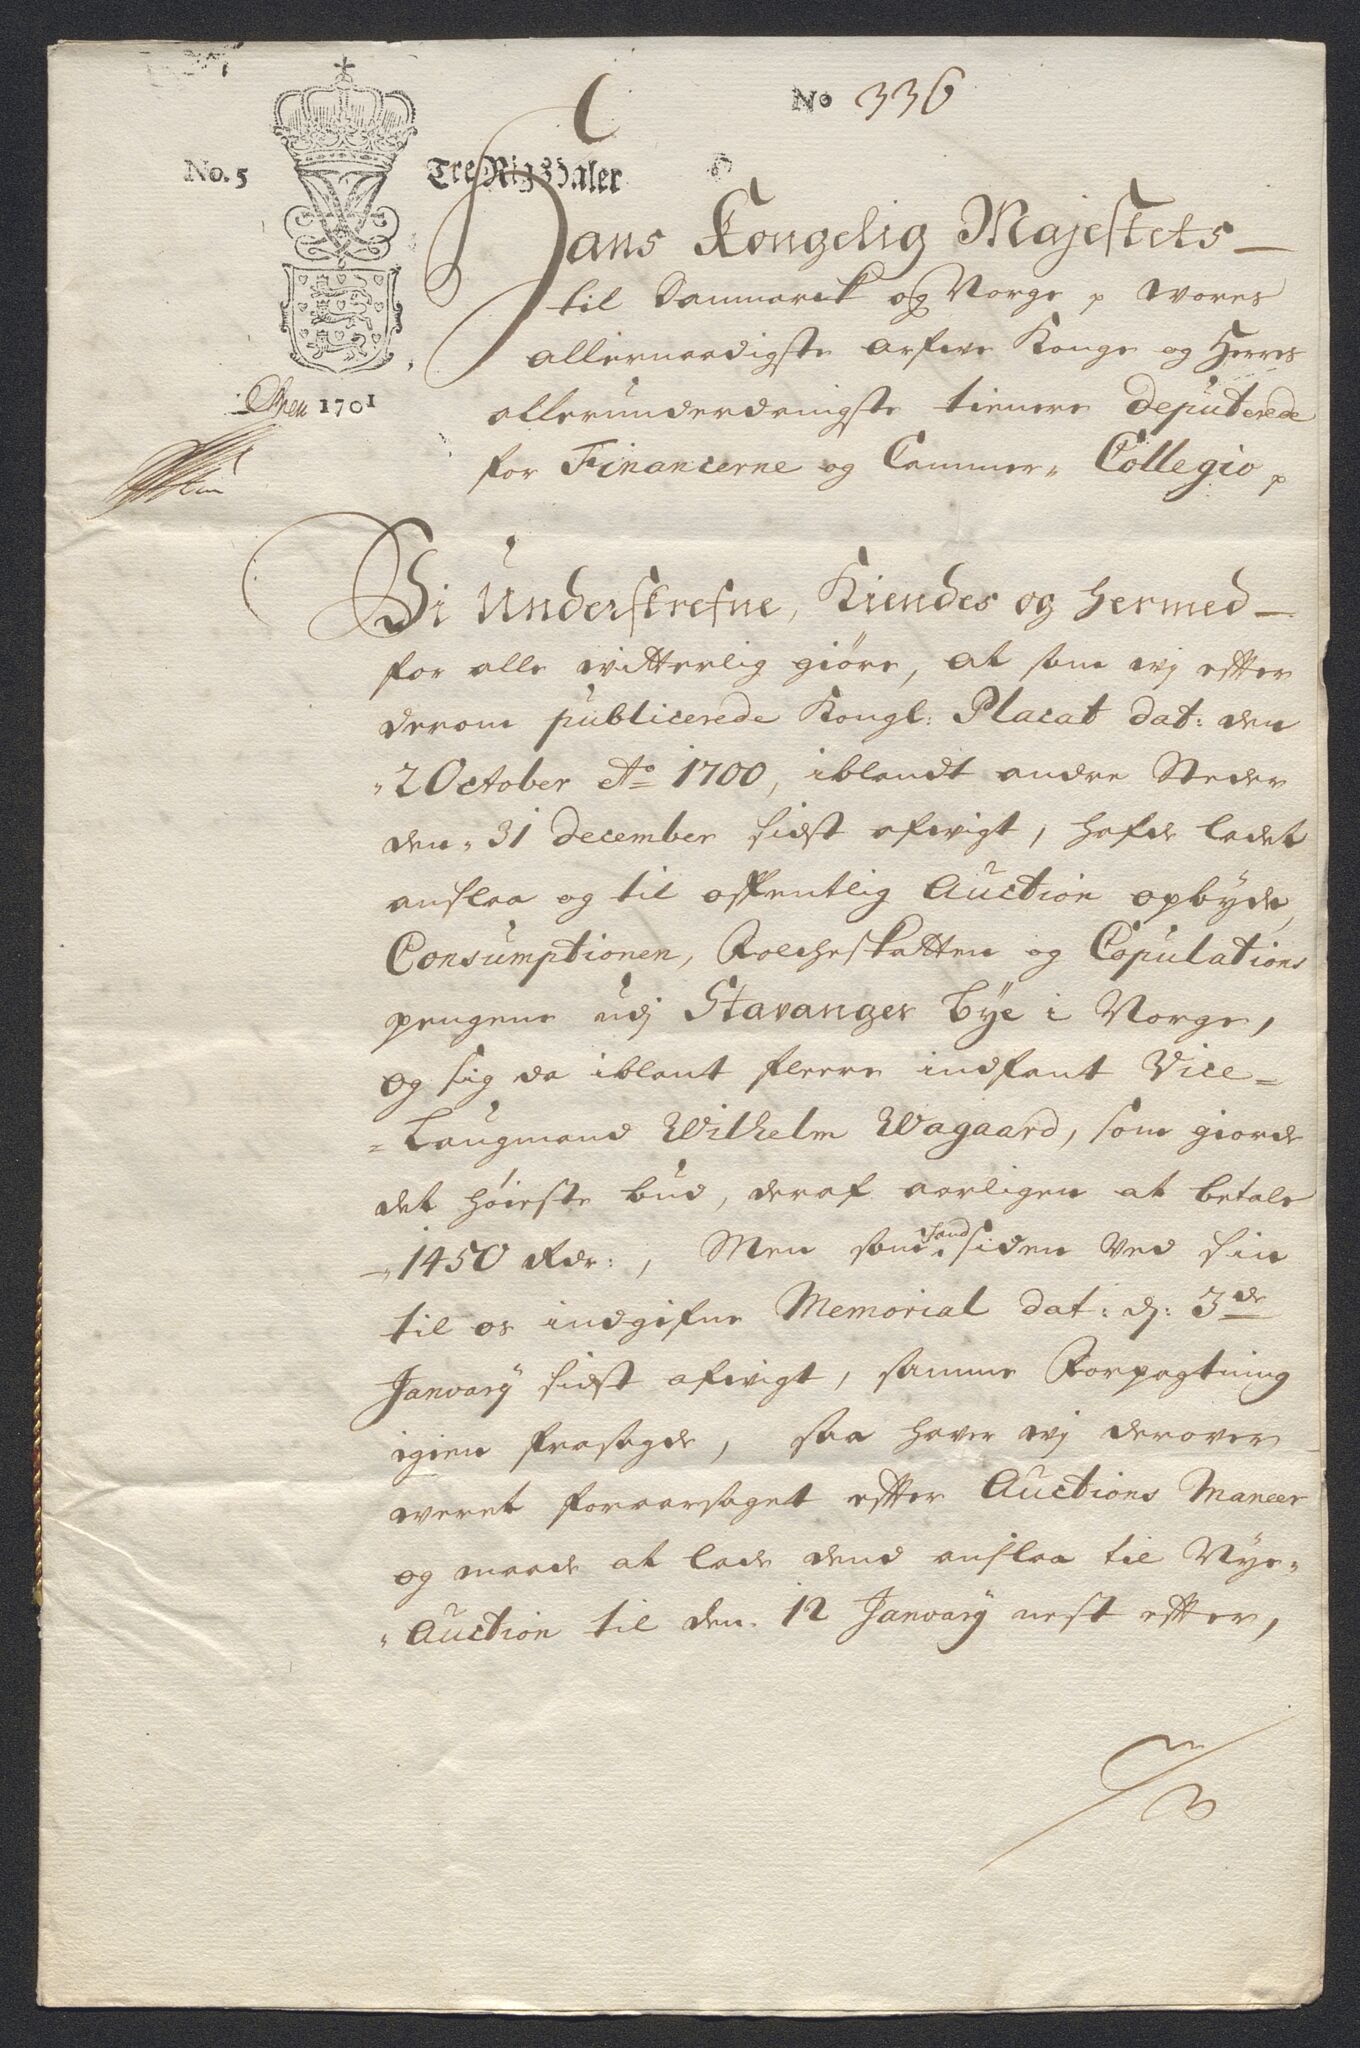 No 336
No. 5 Tre Rigsdaler
C
Hans Kongelig Majestets
til Danmarck og Norge p wores
allernaadigste arfwe Konge og Herres
Anno 1701
allerunderdanigste tienere deputerede
for Financerne og Cammer„ Collegio p
Vi Underskrefne, Kiendes og hermed
for alle witterlig giöre, at som wj effter
derom publicerede Kongl: Placat dat: den
„2 October Ao 1700, iblandt andre Steder
den „ 31 december sidst afwigt, hafde ladet
anslaa og til offentlig Auction opbyde,
Consumptionen, Folcheskatten og Copulations
pengene udj Stavanger bye i Norge,
og sig da iblant fleere indfant Vice=
=Laugmand Wilhelm Wagaard, som giorde
det höieste bud, deraf aarligen at betale
„1450 Rdr:, Men som hand siden ved sin
til os indgifne Memorial dat: d: 3de
Januarÿ sidst afwigt, samme Forpagtning
igien frasagde, saa haver wj derover
weret foraarsaget effter Auctions Maneer
og maade at lade dend anslaa til Nye„
„Auction til den 12 Januarÿ nest effter,